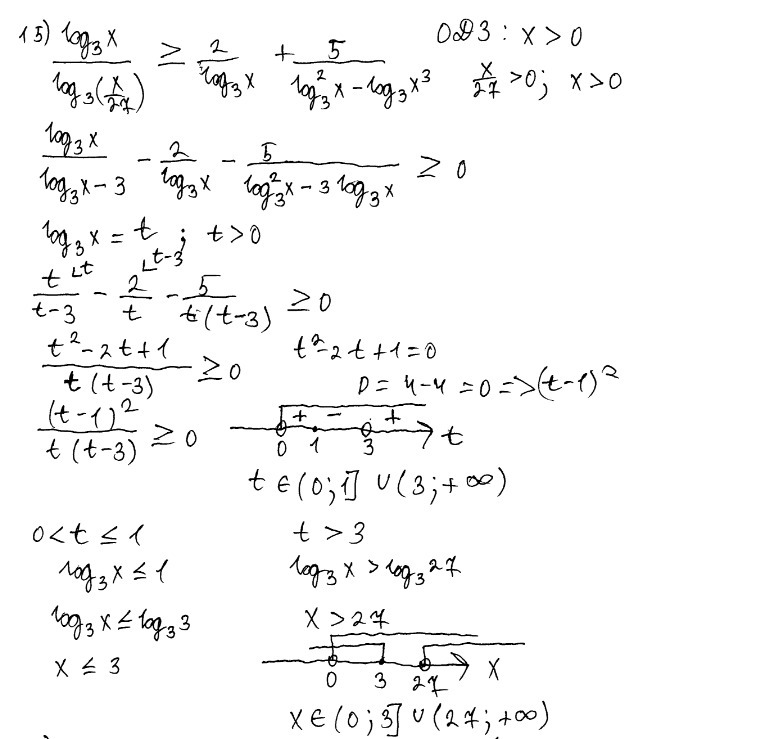 15) log₃x / log₃(x/27) ≥ 2/log₃x + 5/(log₃²x − log₃x³)   ОДЗ : x > 0
x/27 > 0; x > 0
log₃x/(log₃x − 3) − 2/log₃x − 5/(log₃²x − 3 log₃x) ≥ 0
log₃x = t ; t > 0
t ∟t/(t−3) − 2 ∟t−3/t − 5/(t(t−3)) ≥ 0
(t² − 2t + 1)/(t(t−3)) ≥ 0   t² − 2t + 1 = 0
D = 4 − 4 = 0 => (t−1)²
(t−1)²/(t(t−3)) ≥ 0   + − + 0 1 3 t
t ∈ (0; 1] ∪ (3; +∞)
0 < t ≤ 1   t > 3
log₃x ≤ 1   log₃x > log₃27
log₃x ≤ log₃3   x > 27
x ≤ 3   0 3 27 x
x ∈ (0; 3] ∪ (27; +∞)